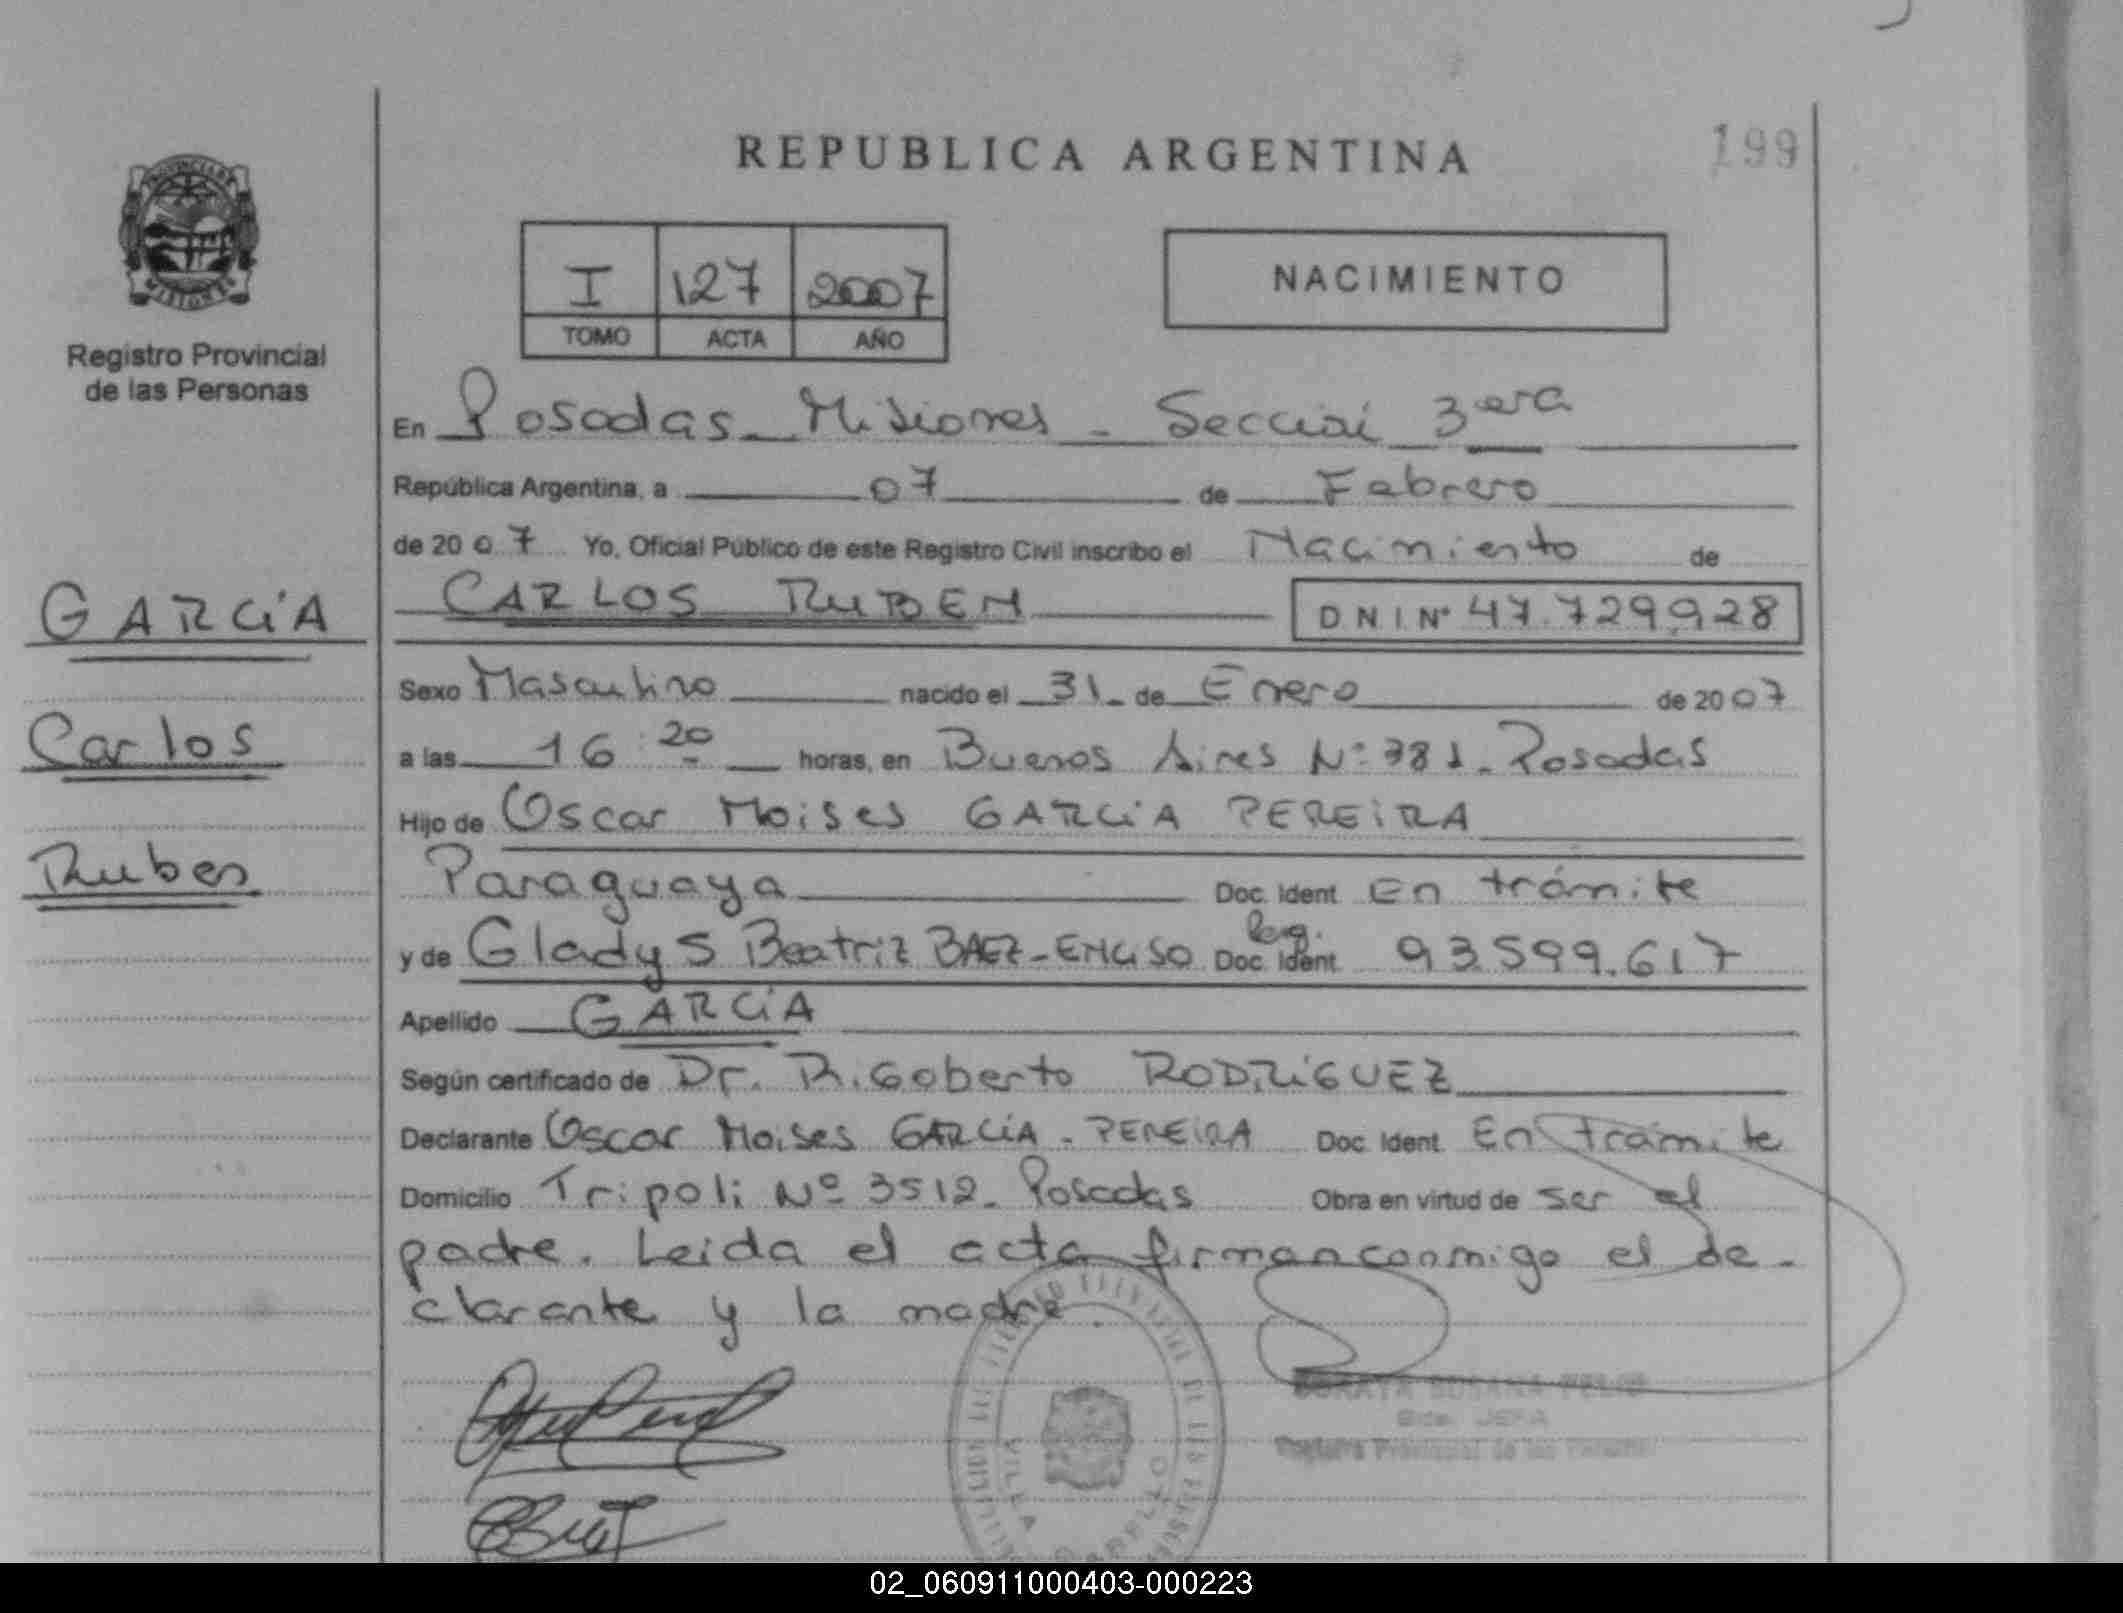 REPUBLICA ARGENTINA
199
PROVINCIA DE
MISIONES
Registro Provincial
de las Personas
I 127 2007
TOMO ACTA AÑO
NACIMIENTO
En Posadas - Misiones - Sección 3era
República Argentina, a 07 de Febrero
de 2007 Yo, Oficial Público de este Registro Civil inscribo el Nacimiento de
CARLOS RUBEN D N I Nº 47.729.928
GARCÍA
Carlos
Ruben
Sexo Masculino nacido el 31 - de Enero de 2007
a las 16:20 horas, en Buenos Aires Nº 781 - Posadas
Hijo de Oscar Moises GARCÍA PEREIRA
Paraguaya Doc. Ident. En trámite
y de Gladys Beatriz BAEZ - ENCISO Doc. Ident. 93.599.617
Apellido GARCÍA
Según certificado de Dr. Rigoberto RODRÍGUEZ
Declarante Oscar Moises GARCÍA - PEREIRA Doc. Ident. En trámite
Domicilio Tripoli Nº 3512 - Posadas Obra en virtud de ser el
padre. Leida el acta firman conmigo el de-
clarante y la madre.
SORAYA SUSANA FELIU
JEFA
Registro Provincial de las Personas
VILLA CABELLO
02_060911000403-000223